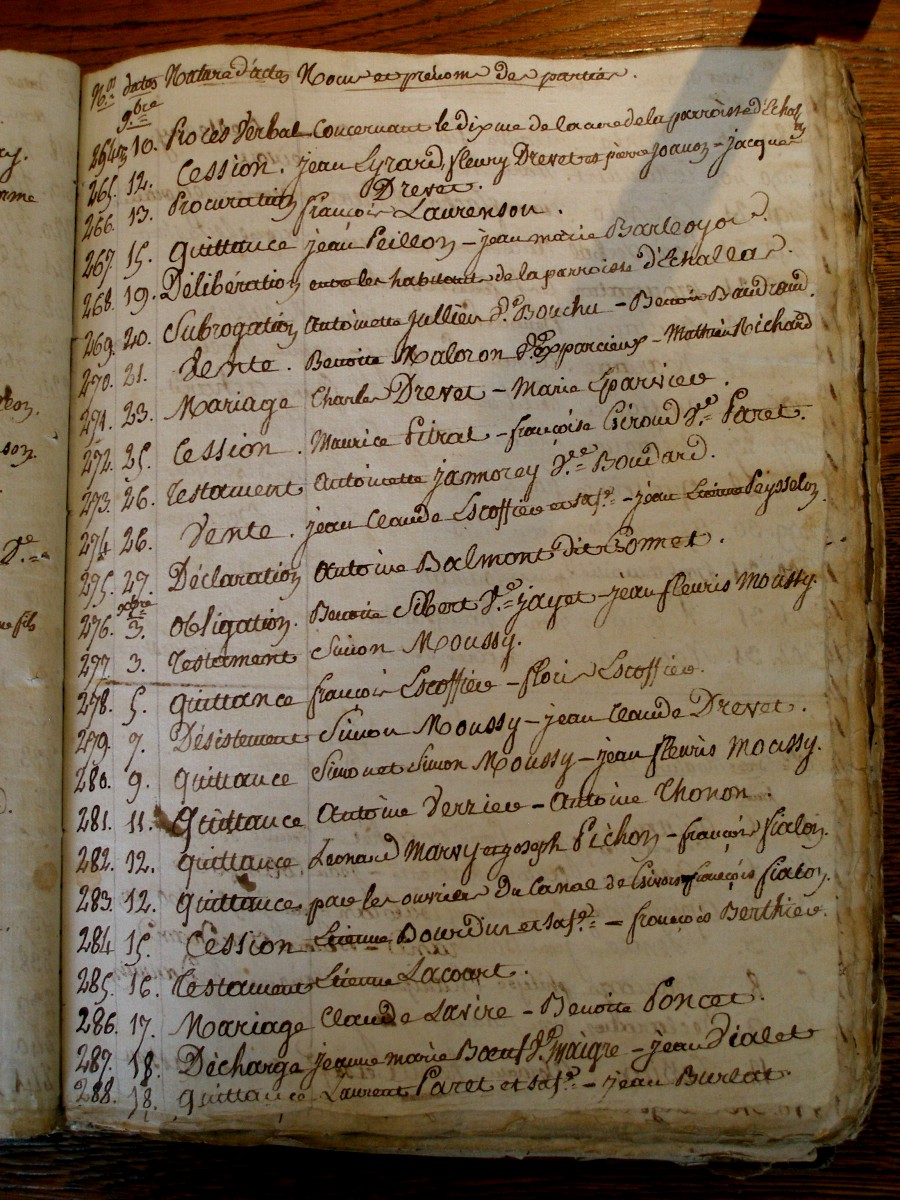 N.os dates Nature d'actes Noms et prénoms des parties.
9.bre
264 10. Procés Verbal Concernant le dixme de la cure de la parroisse d'Echalas
265. 12. Cession. jean Gyrard, fleury Drevet et pierre joanon - jacque
Drevet.
266. 13. Procuration françois Laurenson.
267. 15. Quittance jean Peillon - jean marie Barleyor.
268. 19. Délibération entre les habitants de la parroisse d'Echallas.
269. 20. Subrogation Antoinette Jullien d.e Bouchu - Benoit Baudrand.
270. 21. Vente. Benoite Maloron d.e Exparcieux - Mathieu Richard
271. 23. Mariage Charles Drevet - Marie Eparvier.
272. 25. Cession. Maurice Pitrat - françoise Giroud d.e Paret.
273. 26. Testament Antoinette jamorey d.e Boudard.
274 26. Vente. jean Claude Escoffier et sa f.e - jean Etienne Peysselon
275. 27. Déclaration Antoine Balmont dit Comet.
xbre
276. 3. Obligation. Benoite Sibert d.e jayet - jean fleuris Moussy.
277. 3. Testament Simon Moussy.
278. 5. Quittance françois Escoffier - floris Escoffier.
279. 7. Désistement Simon Moussy - jean Claude Drevet.
280. 9. Quittance Simon et Simon Moussy - jean fleuris Moussy.
281. 11. Quittance Antoine Verrier - Antoine Thonon.
282. 12. Quittance Léonard Marvy et joseph Pichon - françois fialon.
283. 12. Quittance par les ouvriers du Canal de Givors françois fiaton.
284 15. Cession Etienne Bourdin et sa f.e - françois Berthier.
285. 16. Testament Etienne Lacourt.
286. 17. Mariage Claude Lavire - Benoite Poncet.
287. 18. Décharge jeanne marie Bœuf d.e Maigre - jean Vialet
288. 18. Quittance Laurent Paret et sa f.e - jean Burlat